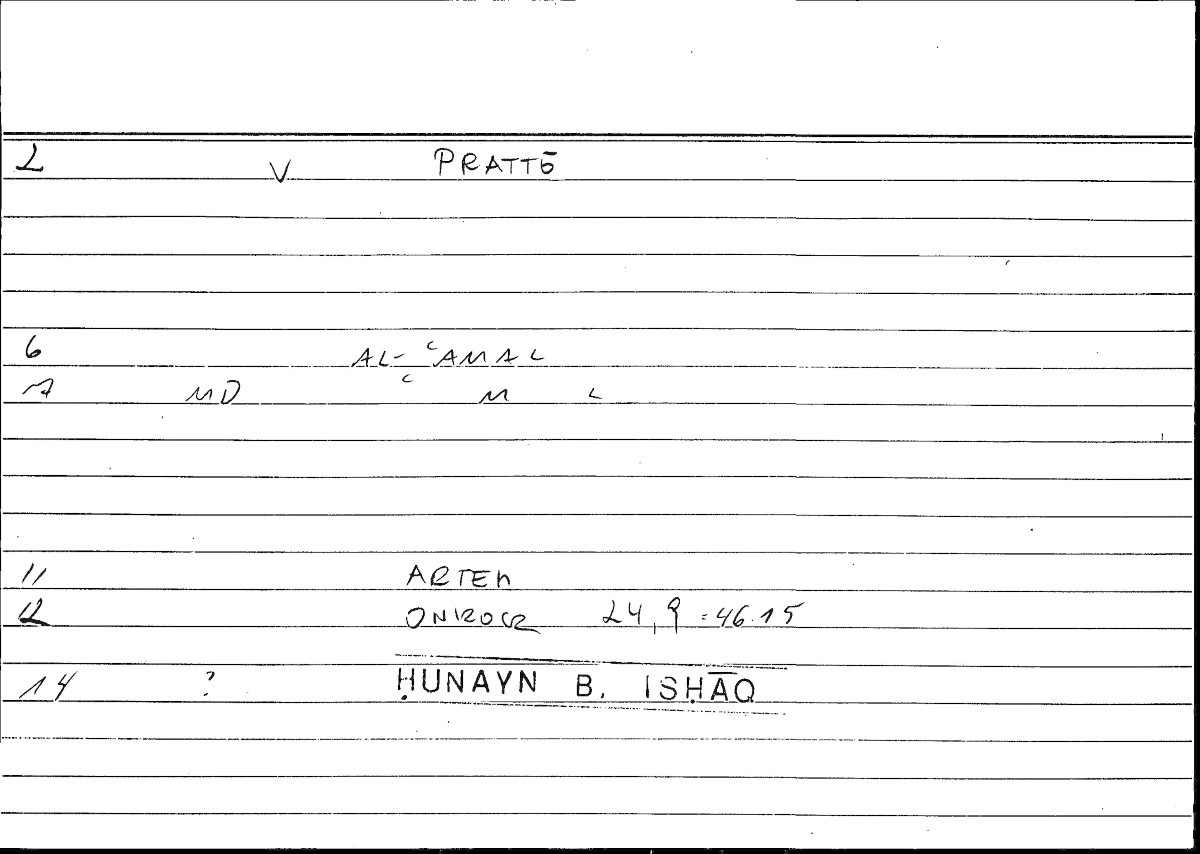 2 V PRATTŌ
6 AL-ʿAMAL
7 MD ʿ M L
11 ARTEM
12 ONIROCR 24,9 = 46.15
14 ? ḤUNAYN B. ISḤĀQ